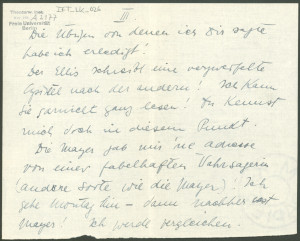 Freie Universität
Berlin
III
Die Übrigen von denen ich Dir sagte
habe ich erledigt!
Der Uli schreibt eine verworfelte
Epistel nach der anderen! Ich kann
sie garnicht ganz lesen! Du kennst
mich doch in diesem Punkt.
Die Mayer gab mir 'ne adresse
von einer fabelhaften Wahrsagerin
(andere Sorte wie die Mayer)! Ich
gehe Montag hin – dann nachher
Mayer! Ich werde vergleichen.